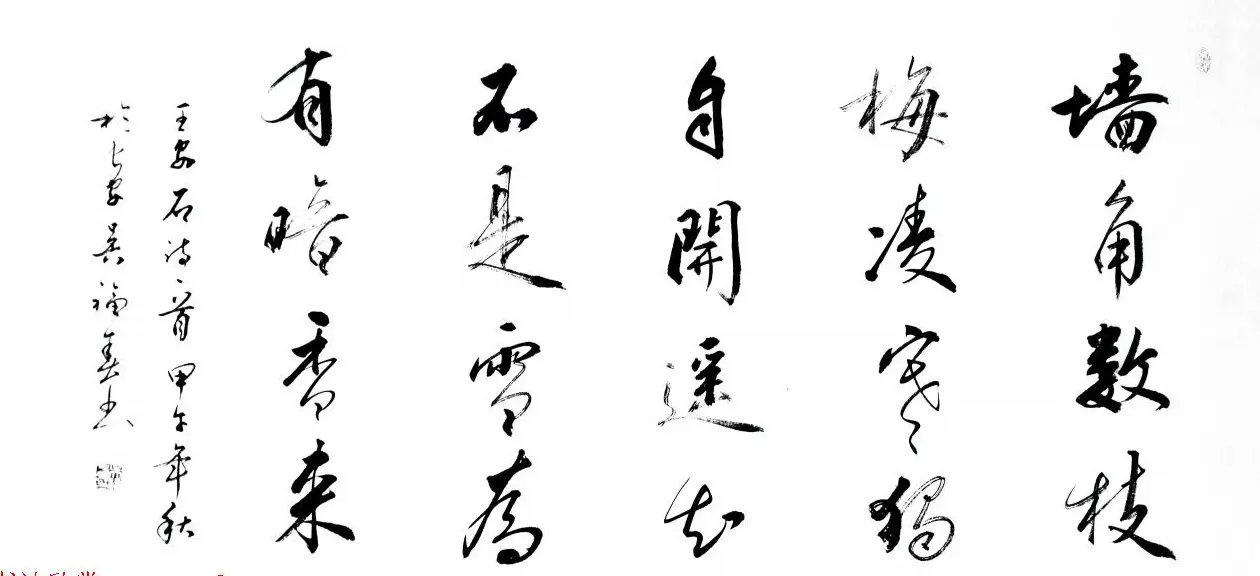 墙角数枝
梅凌寒獨
自開遥知
不是雪為
有暗香来
王安石诗一首甲午年秋
於长安吴福书